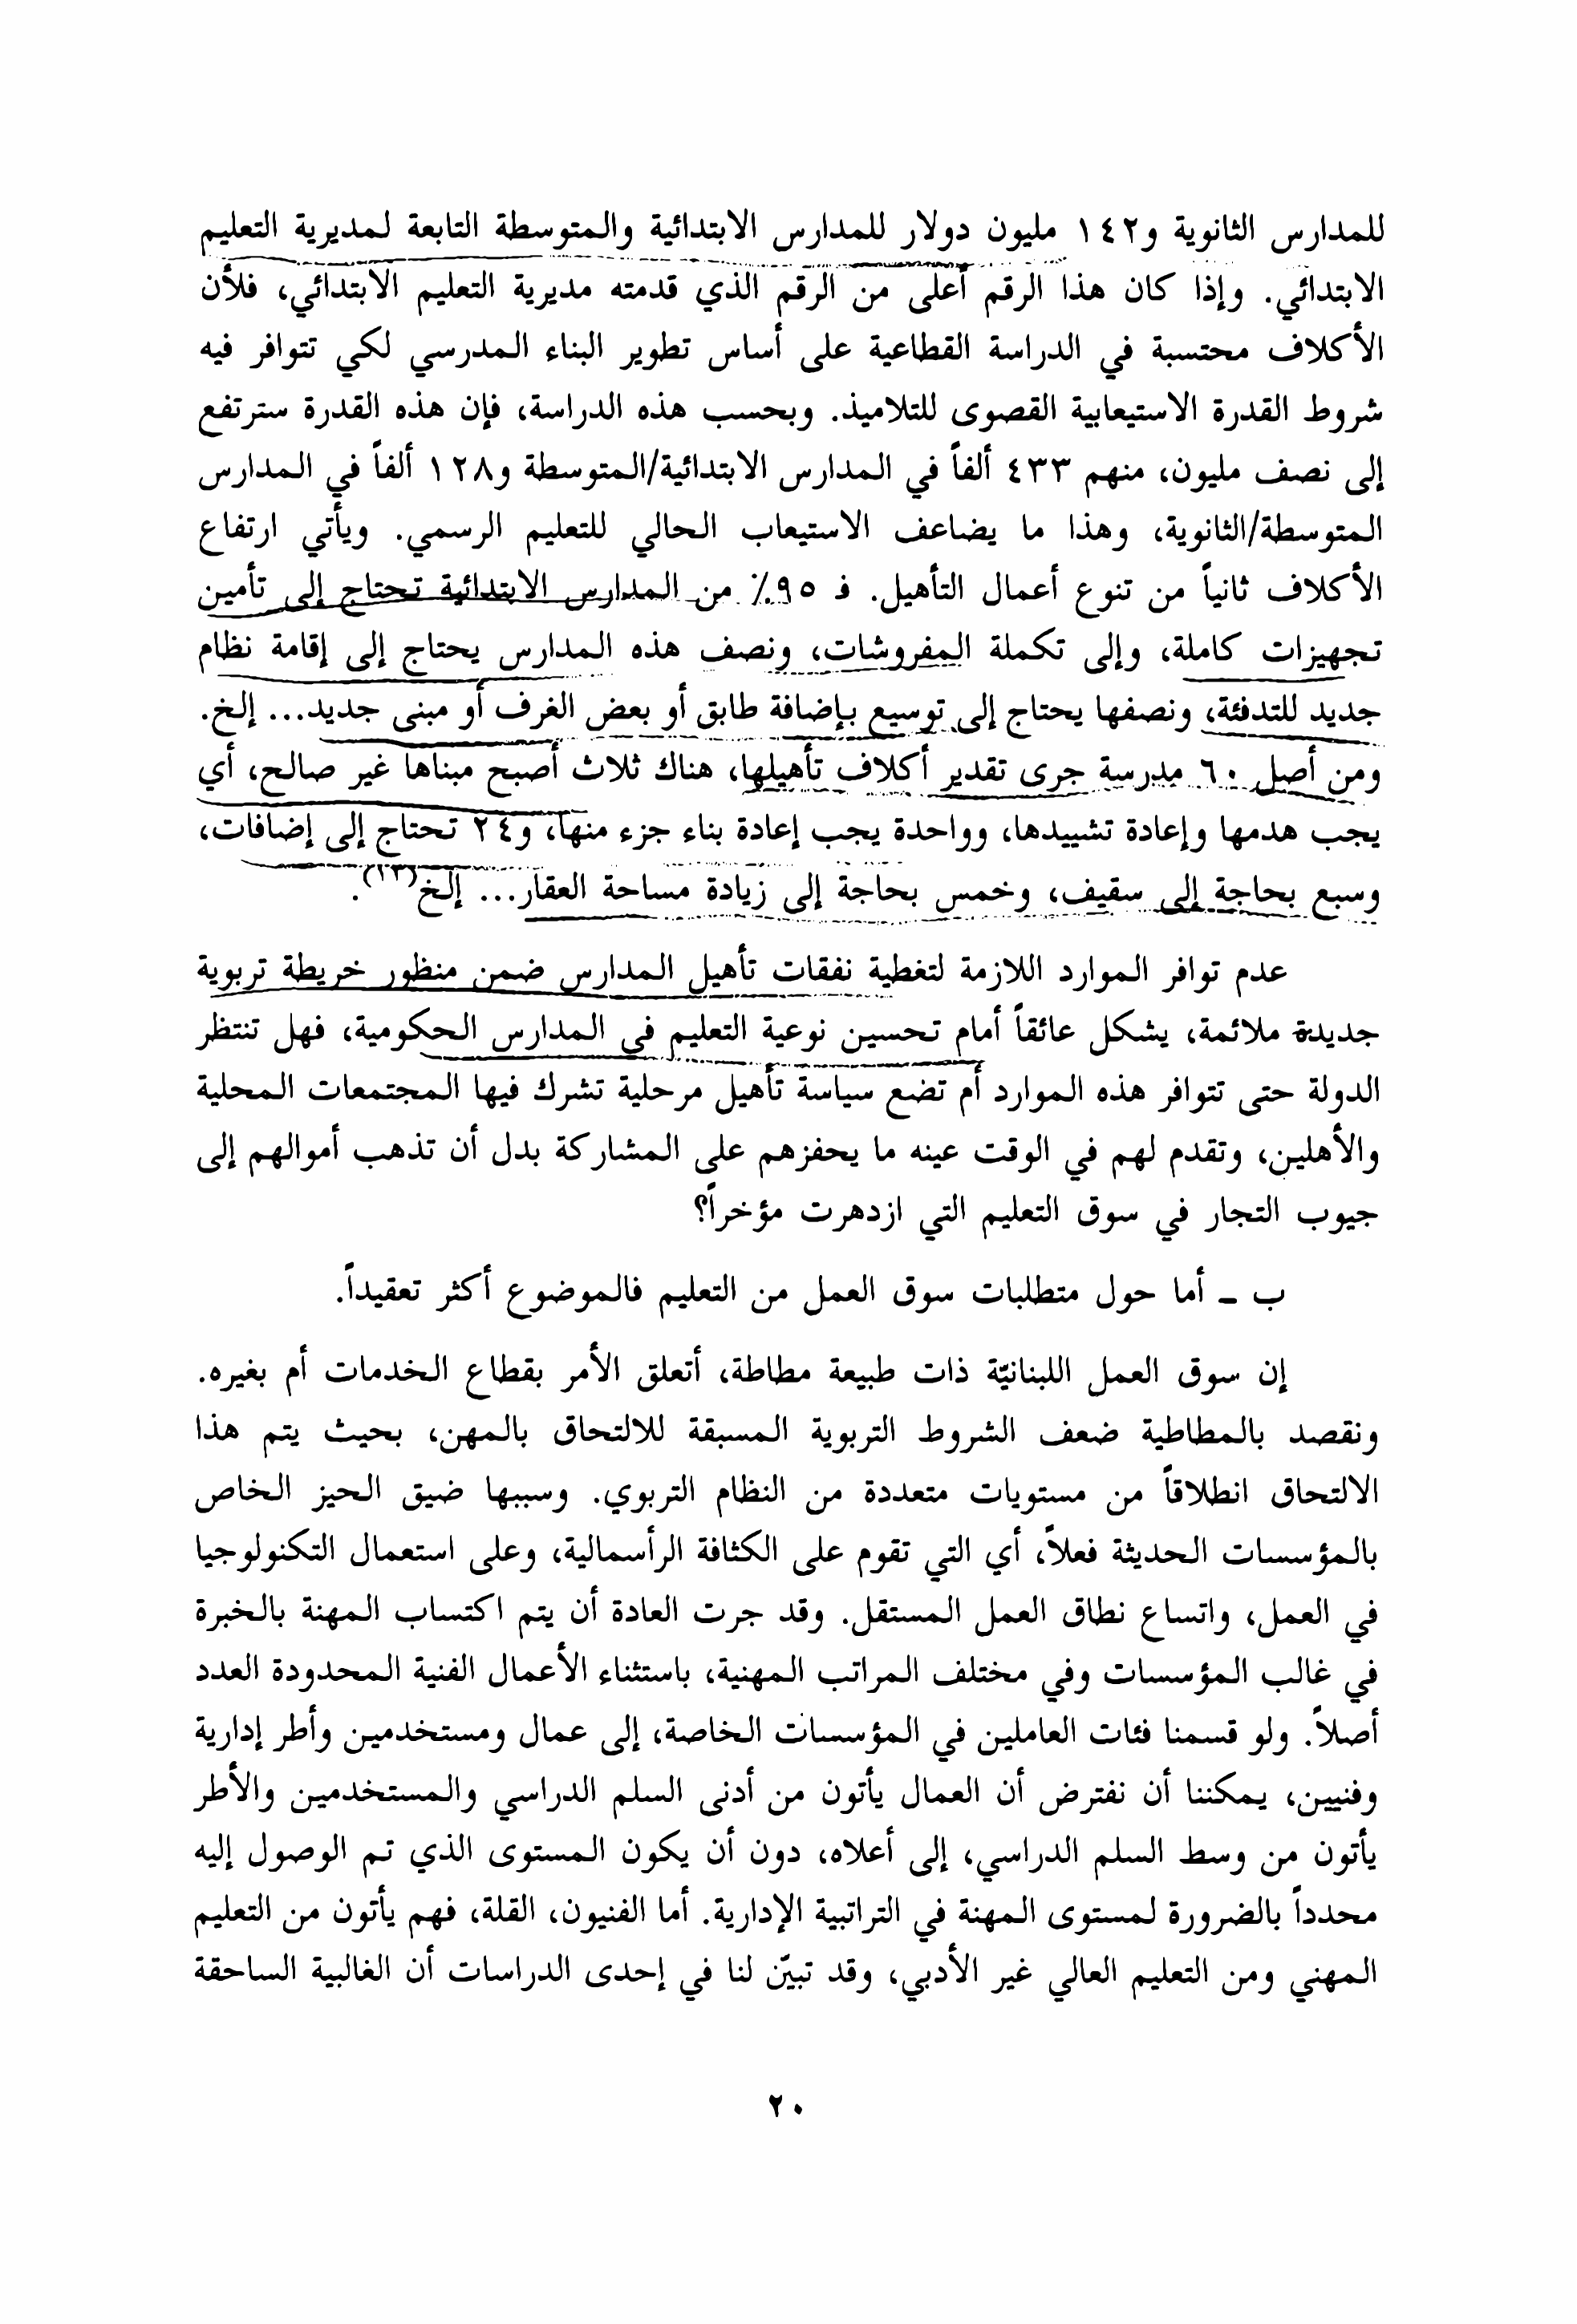 للمدارس الثانوية و١٤٢ مليون دولار للمدارس الابتدائية والمتوسطة التابعة لمديرية التعليم
الابتدائي. وإذا كان هذا الرقم أعلى من الرقم الذي قدمته مديرية التعليم الابتدائي، فلأن
الأكلاف محتسبة في الدراسة القطاعية على أساس تطوير البناء المدرسي لكي تتوافر فيه
شروط القدرة الاستيعابية القصوى للتلاميذ. وبحسب هذه الدراسة، فإن هذه القدرة سترتفع
إلى نصف مليون، منهم ٤٣٣ ألفاً في المدارس الابتدائية/المتوسطة و١٢٨ ألفاً في المدارس
المتوسطة/الثانوية، وهذا ما يضاعف الاستيعاب الحالي للتعليم الرسمي. ويأتي ارتفاع
الأكلاف ثانياً من تنوع أعمال التأهيل. فـ ٩٥٪ من المدارس الابتدائية تحتاج إلى تأمين
تجهيزات كاملة، وإلى تكملة المفروشات، ونصف هذه المدارس يحتاج إلى إقامة نظام
جديد للتدفئة، ونصفها يحتاج إلى توسيع بإضافة طابق أو بعض الغرف أو مبنى جديد... إلخ.
ومن أصل ٦٠ مدرسة جرى تقدير أكلاف تأهيلها، هناك ثلاث أصبح مبناها غير صالح، أي
يجب هدمها وإعادة تشييدها، وواحدة يجب إعادة بناء جزء منها، و٢٤ تحتاج إلى إضافات،
وسبع بحاجة إلى سقيف، وخمس بحاجة إلى زيادة مساحة العقار... إلخ(١٣).
عدم توافر الموارد اللازمة لتغطية نفقات تأهيل المدارس ضمن منظور خريطة تربوية
جديدة ملائمة، يشكل عائقاً أمام تحسين نوعية التعليم في المدارس الحكومية، فهل تنتظر
الدولة حتى تتوافر هذه الموارد أم تضع سياسة تأهيل مرحلية تشرك فيها المجتمعات المحلية
والأهلين، وتقدم لهم في الوقت عينه ما يحفزهم على المشاركة بدل أن تذهب أموالهم إلى
جيوب التجار في سوق التعليم التي ازدهرت مؤخراً؟
ب - أما حول متطلبات سوق العمل من التعليم فالموضوع أكثر تعقيداً.
إن سوق العمل اللبنانيّة ذات طبيعة مطاطة، أتعلق الأمر بقطاع الخدمات أم بغيره.
ونقصد بالمطاطية ضعف الشروط التربوية المسبقة للالتحاق بالمهن، بحيث يتم هذا
الالتحاق انطلاقاً من مستويات متعددة من النظام التربوي. وسببها ضيق الحيز الخاص
بالمؤسسات الحديثة فعلاً، أي التي تقوم على الكثافة الرأسمالية، وعلى استعمال التكنولوجيا
في العمل، واتساع نطاق العمل المستقل. وقد جرت العادة أن يتم اكتساب المهنة بالخبرة
في غالب المؤسسات وفي مختلف المراتب المهنية، باستثناء الأعمال الفنية المحدودة العدد
أصلاً. ولو قسمنا فئات العاملين في المؤسسات الخاصة، إلى عمال ومستخدمين وأطر إدارية
وفنيين، يمكننا أن نفترض أن العمال يأتون من أدنى السلم الدراسي والمستخدمين والأطر
يأتون من وسط السلم الدراسي، إلى أعلاه، دون أن يكون المستوى الذي تم الوصول إليه
محدداً بالضرورة لمستوى المهنة في التراتبية الإدارية. أما الفنيون، القلة، فهم يأتون من التعليم
المهني ومن التعليم العالي غير الأدبي، وقد تبيّن لنا في إحدى الدراسات أن الغالبية الساحقة
٢٠